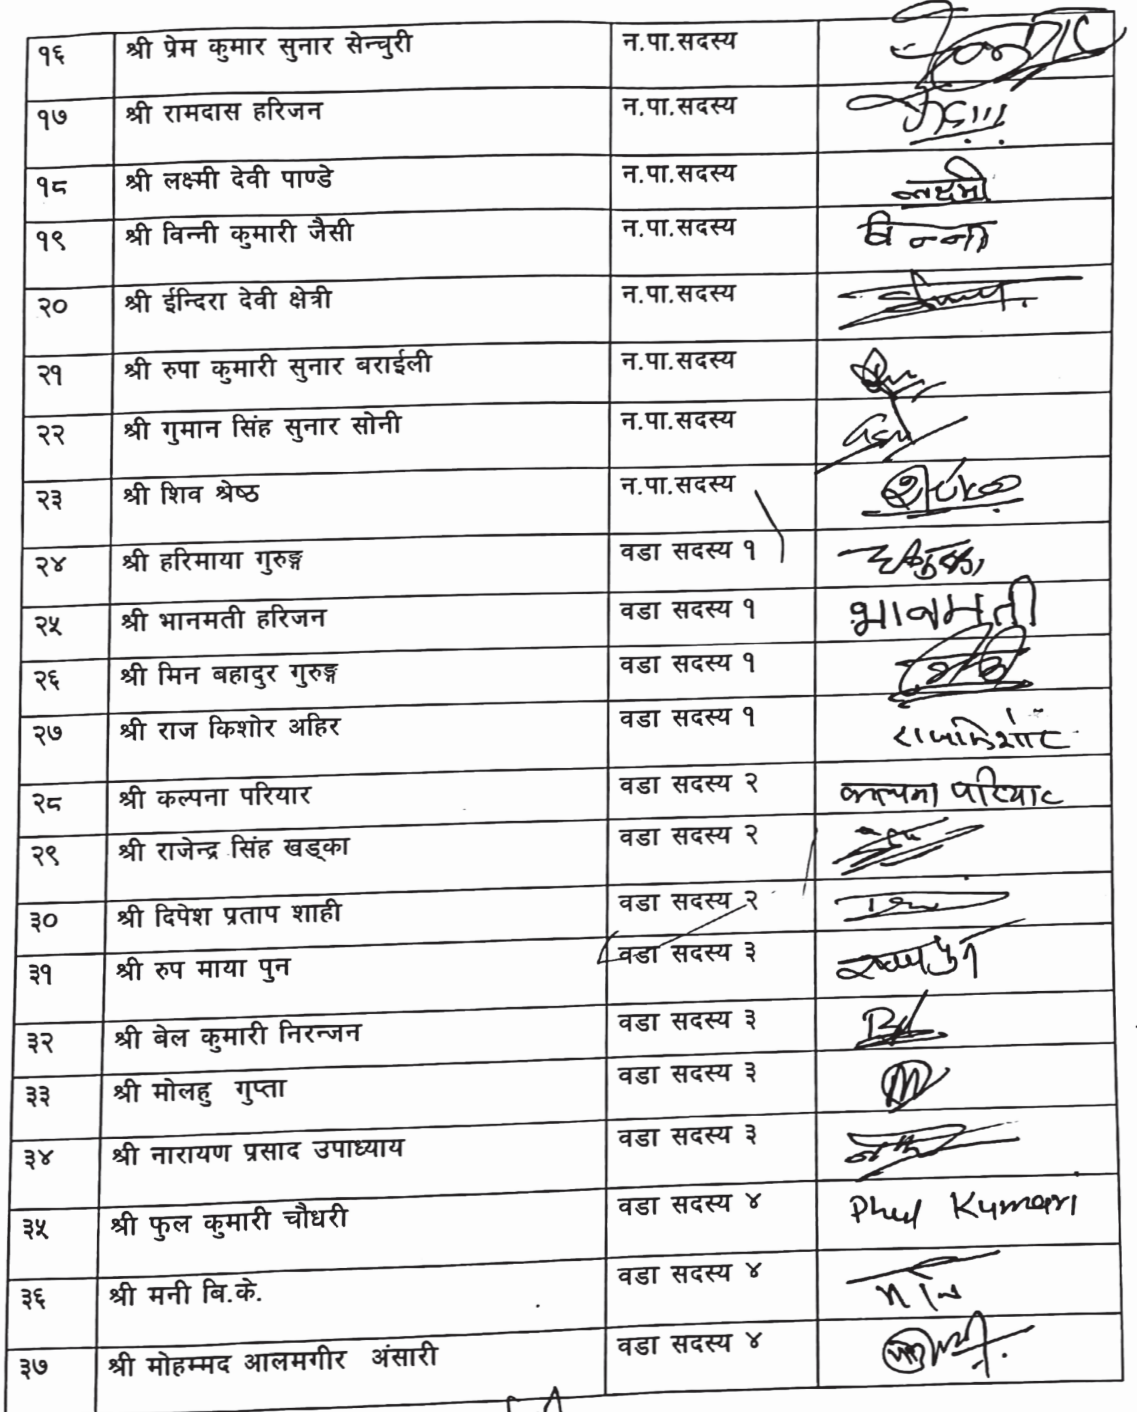 १६ श्री प्रेम कुमार सुनार सेन्चुरी न.पा.सदस्य
१७ श्री रामदास हरिजन न.पा.सदस्य
१८ श्री लक्ष्मी देवी पाण्डे न.पा.सदस्य लक्ष्मी
१९ श्री विन्नी कुमारी जैसी न.पा.सदस्य
२० श्री ईन्दिरा देवी क्षेत्री न.पा.सदस्य
२१ श्री रुपा कुमारी सुनार बराईली न.पा.सदस्य
२२ श्री गुमान सिंह सुनार सोनी न.पा.सदस्य
२३ श्री शिव श्रेष्ठ न.पा.सदस्य
२४ श्री हरिमाया गुरुङ्ग वडा सदस्य १
२५ श्री भानमती हरिजन वडा सदस्य १ भानमती
२६ श्री मिन बहादुर गुरुङ्ग वडा सदस्य १
२७ श्री राज किशोर अहिर वडा सदस्य १ राजकिशोर
२८ श्री कल्पना परियार वडा सदस्य २ कल्पना परियार
२९ श्री राजेन्द्र सिंह खड्का वडा सदस्य २
३० श्री दिपेश प्रताप शाही वडा सदस्य २
३१ श्री रुप माया पुन वडा सदस्य ३
३२ श्री बेल कुमारी निरन्जन वडा सदस्य ३
३३ श्री मोलहु गुप्ता वडा सदस्य ३
३४ श्री नारायण प्रसाद उपाध्याय वडा सदस्य ३
३५ श्री फुल कुमारी चौधरी वडा सदस्य ४ Phul Kumari
३६ श्री मनी बि.के. वडा सदस्य ४
३७ श्री मोहम्मद आलमगीर अंसारी वडा सदस्य ४